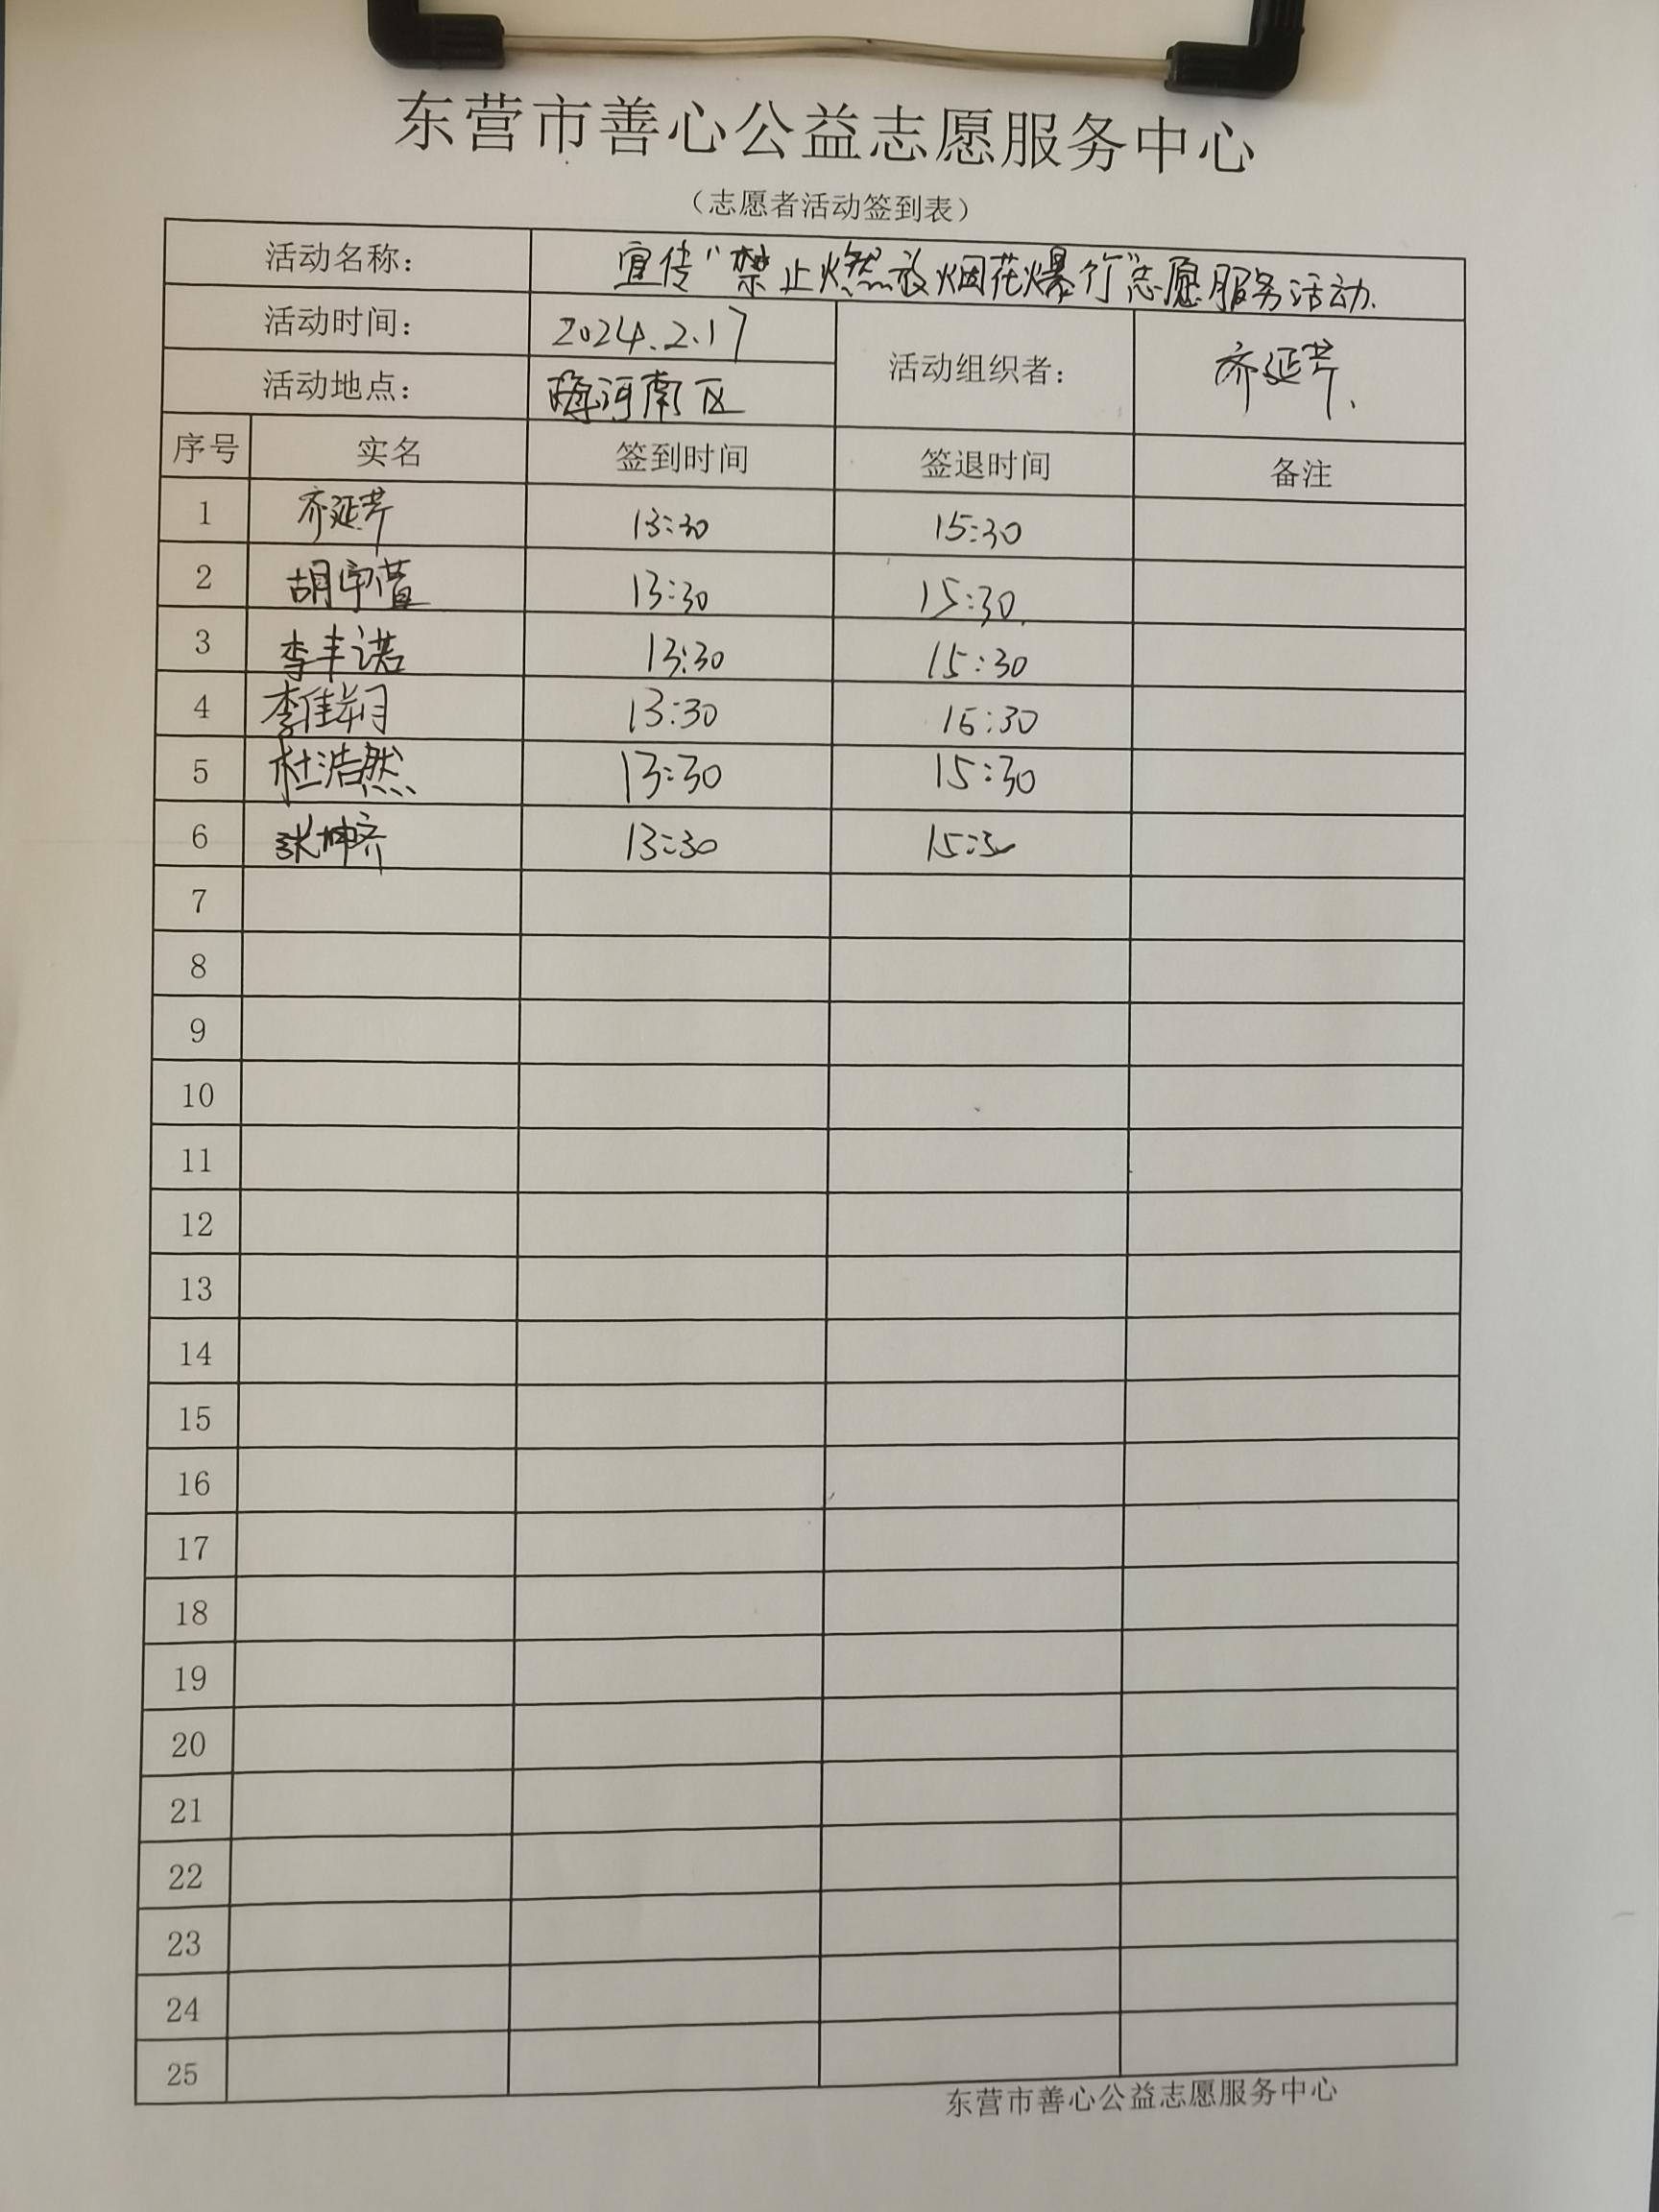 东营市善心公益志愿服务中心
（志愿者活动签到表）
活动名称： 宣传“禁止燃放烟花爆竹”志愿服务活动.
活动时间： 2024.2.17 活动组织者： 齐延芹.
活动地点： 海河南区
序号 实名 签到时间 签退时间 备注
1 齐延芹 13:30 15:30
2 胡宇萱 13:30 15:30.
3 李丰诺 13:30 15:30
4 李佳 13:30 15:30
5 杜浩然 13:30 15:30
6 张坤齐 13:30 15:30
7
8
9
10
11
12
13
14
15
16
17
18
19
20
21
22
23
24
25
东营市善心公益志愿服务中心